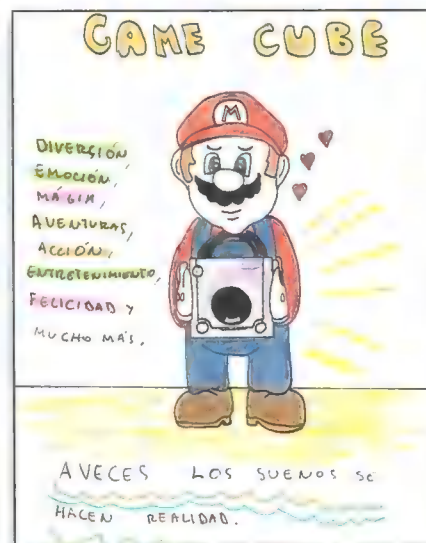 GAME CUBE
M
DIVERSIÓN,
EMOCIÓN,
MÁGIA,
AVENTURAS,
ACCIÓN,
ENTRETENIMIENTO,
FELICIDAD Y
MUCHO MÁS.
AVECES LOS SUENOS SE
HACEN REALIDAD.